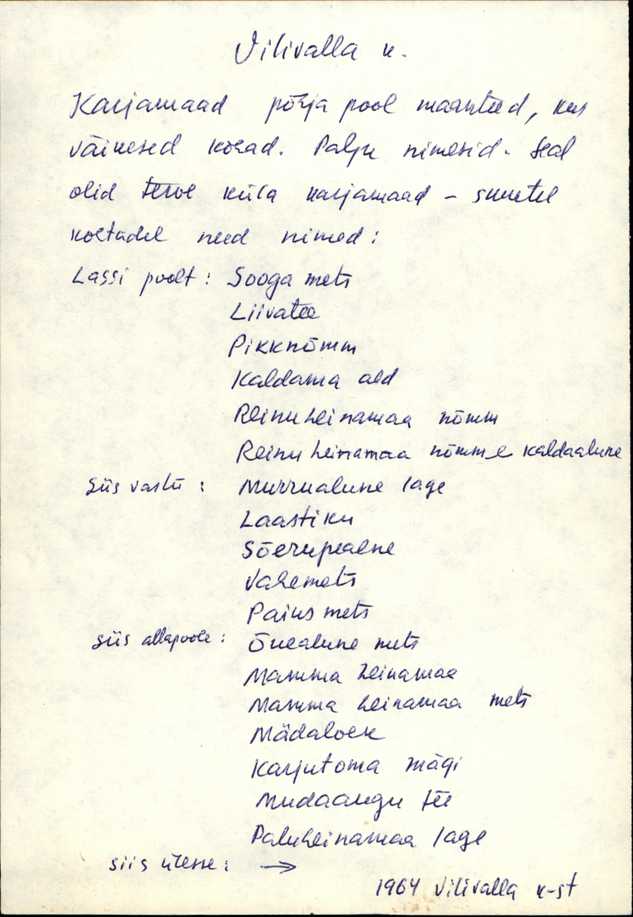 Vilivalla k.
Karjamaad põhja pool maanteed, kus
väikesed kohad. Palju nimesid. Seal
olid terve küla karjamaad - suurtel
kohtadel need nimed:
Lassi poolt: Sooga mets
Liivatee
Pikknõmm
Kaldama aed
Reinuheinamaa nõmm
Reinuheinamaa nõmme kaldaalune
Siis vastu: Murrualune lage
Laastiku
Sõerupealne
Vahemets
Pains mets
Siis allapoole: Õuealune mets
Mamma heinamaa
Mamma heinamaa mets
Mädaloek
Karjutoma mägi
Mudaaugu tee
Paluheinamaa lage
siis ülesse: →
1964 Vilivalla k-st